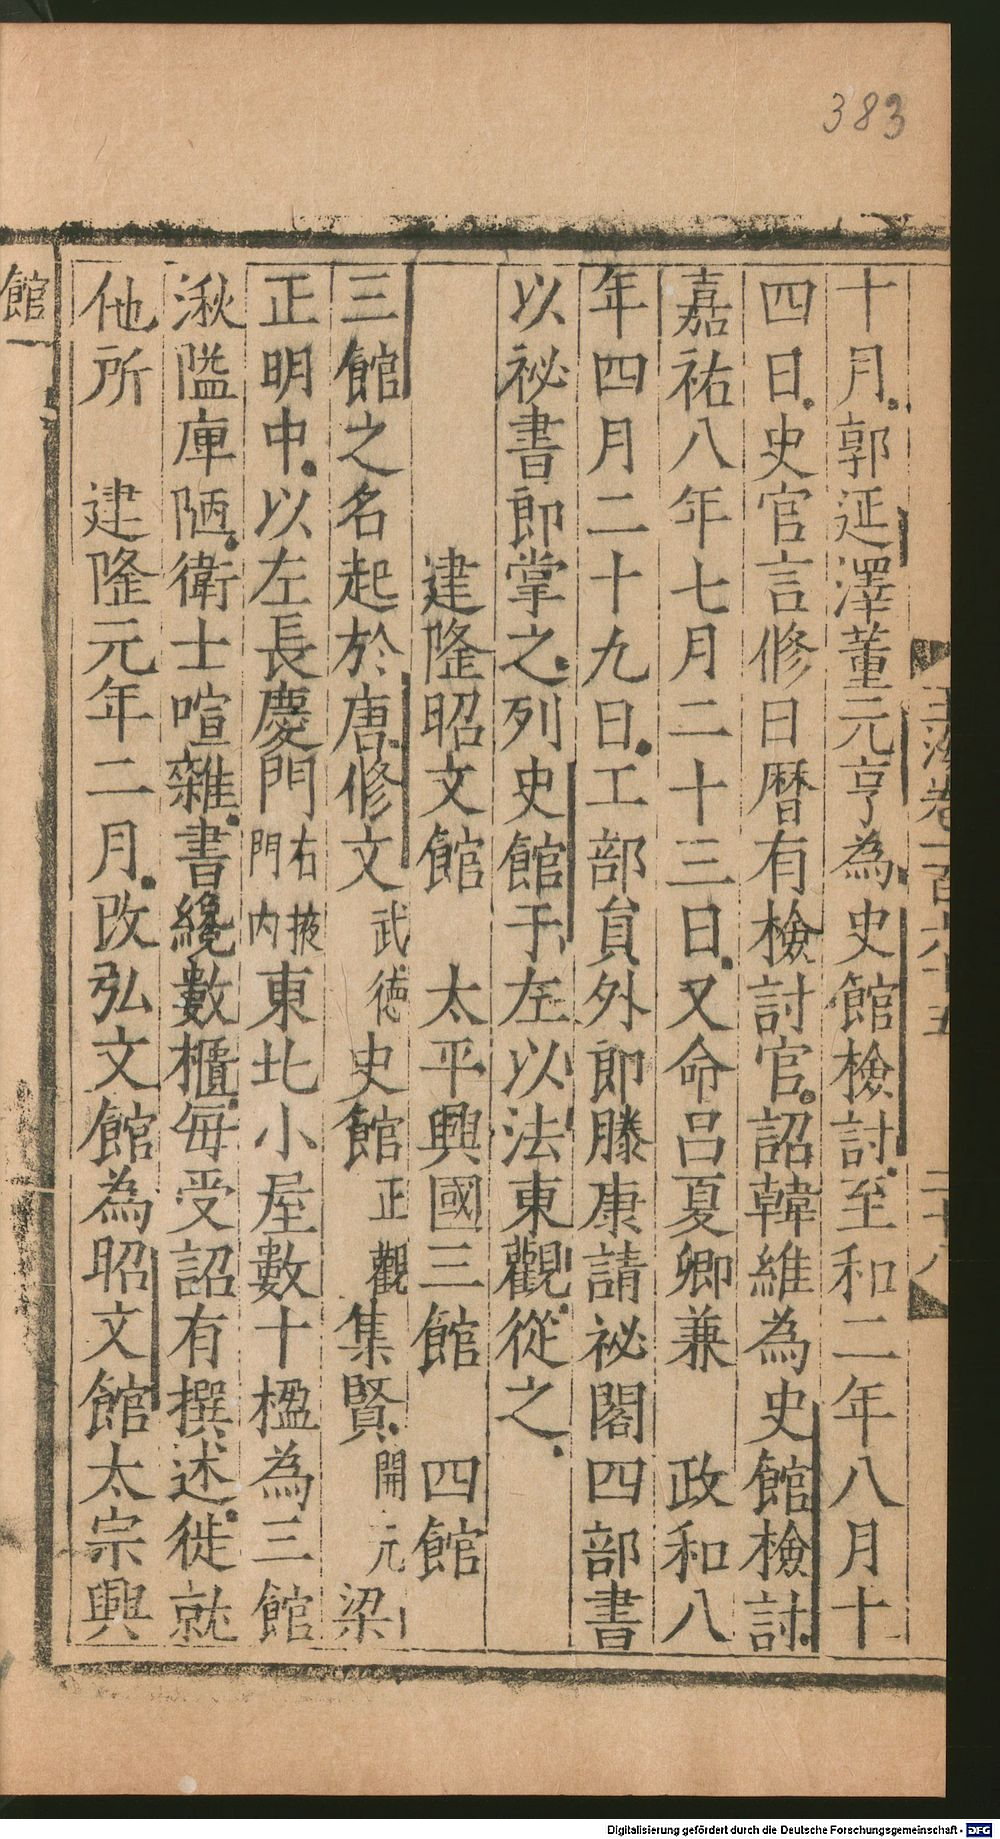 383
玉海卷一百六十五 二十八
十月郭延澤董元亨為史館檢討至和二年八月十
四日史官言修日曆有檢討官詔韓維為史館檢討
嘉祐八年七月二十三日又命呂夏卿兼 政和八
年四月二十九日工部貟外郎滕康請祕閣四部書
以祕書郎掌之列史館于左以法東觀從之
建隆昭文館 太平興國三館 四館
三館之名起於唐修文武德史館正觀集賢開元梁
正明中以左長慶門右掖門內東北小屋數十楹為三館
湫隘庫陋衛士喧雜書纔數櫃每受詔有撰述徙就
他所 建隆元年二月改弘文館為昭文館太宗興
館
Digitalisierung gefördert durch die Deutsche Forschungsgemeinschaft - DFG